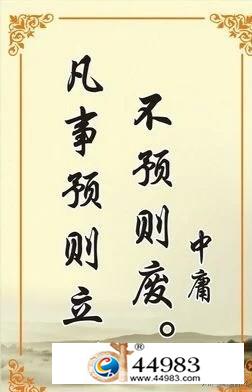 凡事预则立
不预则废。
中庸
44983
www.44983.com